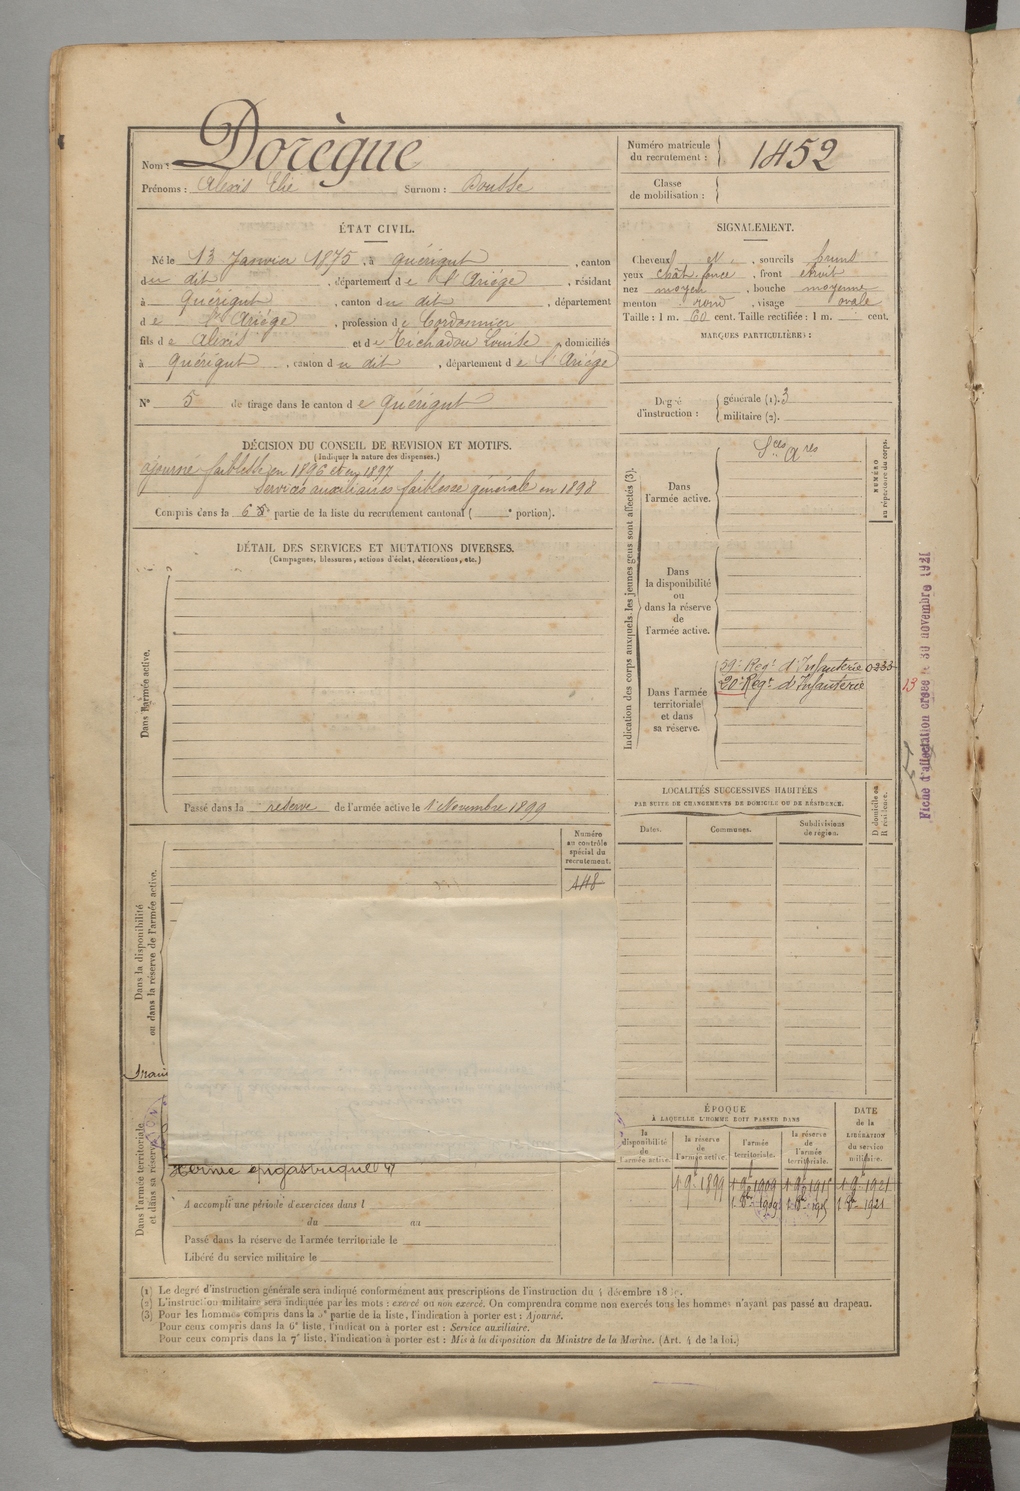 Nom : Dorègue
Prénoms : Alexis Elie Surnom : Dousse
Numéro matricule du recrutement : 1452
Classe de mobilisation :
ÉTAT CIVIL.
Né le 13 Janvier 1875, à Quérigut, canton
du dit, département de l'Ariége, résidant
à Quérigut, canton du dit, département
de l'Ariége, profession de Cordonnier
fils de Alexis et de Tichadou Louise, domiciliés
à Quérigut, canton du dit, département de l'Ariége
N° 5 de tirage dans le canton de Quérigut
SIGNALEMENT.
Cheveux et, sourcils bruns
yeux chât. foncé, front étroit
nez moyen, bouche moyenne
menton rond, visage ovale
Taille : 1 m. 60 cent. Taille rectifiée : 1 m. cent.
MARQUES PARTICULIÈRES :
Degré d'instruction : générale (1). 3
militaire (2).
DÉCISION DU CONSEIL DE REVISION ET MOTIFS.
(Indiquer la nature des dispenses.)
ajourné faiblesse en 1896 et en 1897
Services auxiliaires faiblesse générale en 1898
Compris dans la 6e partie de la liste du recrutement cantonal ( e portion).
DÉTAIL DES SERVICES ET MUTATIONS DIVERSES.
(Campagnes, blessures, actions d'éclat, décorations, etc.)
Dans l'armée active.
Passé dans la réserve de l'armée active le 1 Novembre 1899
Indication des corps auxquels les jeunes gens sont affectés (3).
NUMÉRO au répertoire du corps.
Dans l'armée active.
Sces Ares
Dans la disponibilité ou dans la réserve de l'armée active.
Dans l'armée territoriale et dans sa réserve.
39e Regt d'Infanterie 0233
20e Regt d'Infanterie
13
Fiche d'affectation créée le 30 novembre 1921
LOCALITÉS SUCCESSIVES HABITÉES
PAR SUITE DE CHANGEMENTS DE DOMICILE OU DE RÉSIDENCE.
Dates.
Communes.
Subdivisions de région.
D. domicile ou R. résidence.
Numéro au contrôle spécial du recrutement.
448
Dans la disponibilité ou dans la réserve de l'armée active.
Dans l'armée territoriale et dans sa réserve.
Hernie épigastrique
A accompli une période d'exercices dans l
du au
Passé dans la réserve de l'armée territoriale le
Libéré du service militaire le
ÉPOQUE
À LAQUELLE L'HOMME DOIT PASSER DANS
la disponibilité de l'armée active.
la réserve de l'armée active.
l'armée territoriale.
la réserve de l'armée territoriale.
DATE de la LIBÉRATION du service militaire.
1 9e 1899
1 9e 1909
1 9e 1915
1 9e 1921
1 8e 1909
1 8e 1915
1 8e 1921
(1) Le degré d'instruction générale sera indiqué conformément aux prescriptions de l'instruction du 4 décembre
(2) L'instruction militaire sera indiquée par les mots : exercé ou non exercé. On comprendra comme non exercés tous les hommes n'ayant pas passé au drapeau.
(3) Pour les hommes compris dans la 5e partie de la liste, l'indication à porter est : Ajourné.
Pour ceux compris dans la 6e liste, l'indication à porter est : Service auxiliaire.
Pour ceux compris dans la 7e liste, l'indication à porter est : Mis à la disposition du Ministre de la Marine. (Art. 4 de la loi.)